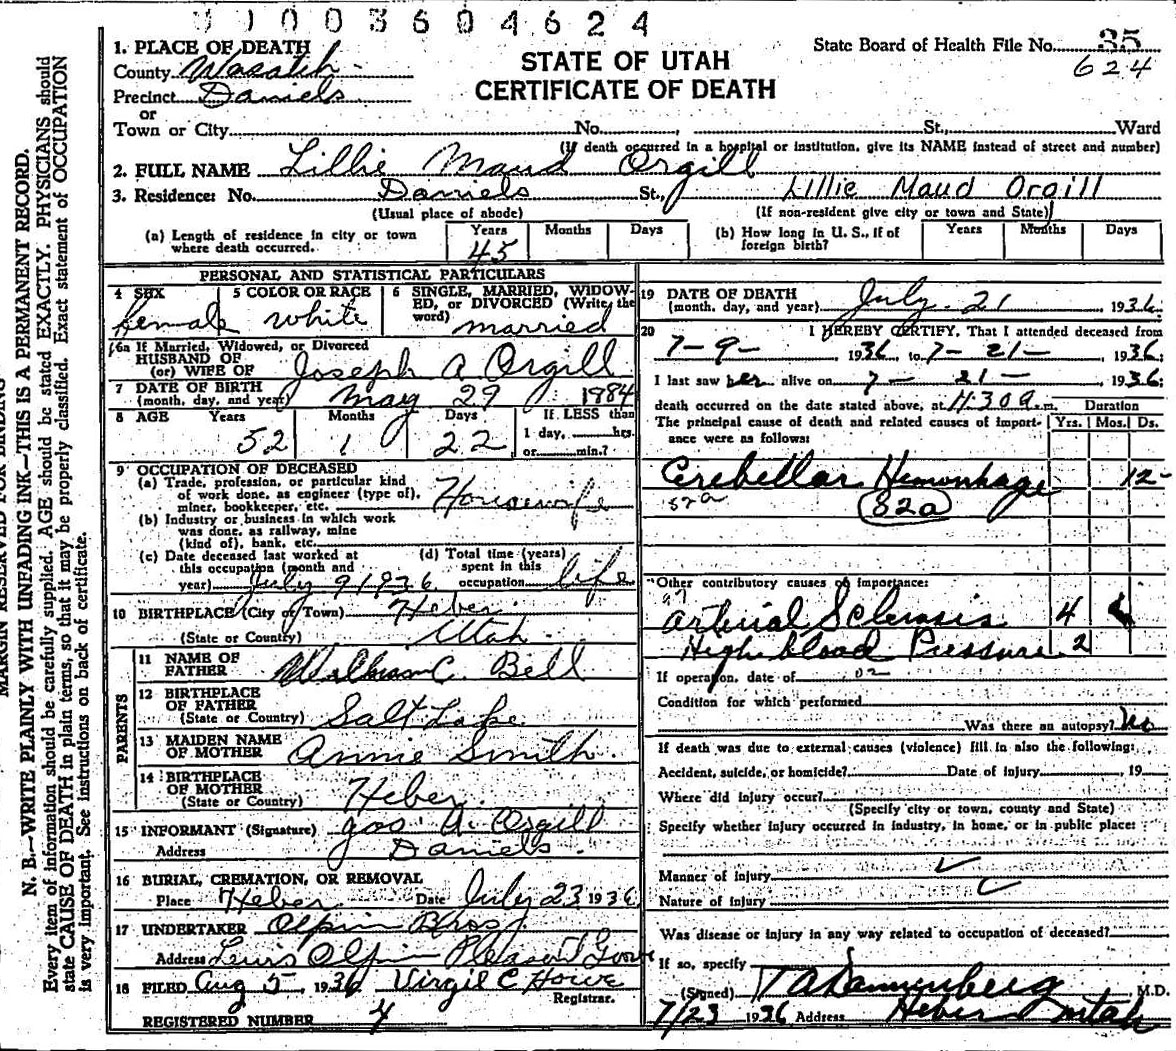 0003604624
MARGIN RESERVED FOR BINDING
N. B.—WRITE PLAINLY WITH UNFADING INK—THIS IS A PERMANENT RECORD.
Every item of information should be carefully supplied. AGE should be stated EXACTLY. PHYSICIANS should
state CAUSE OF DEATH in plain terms, so that it may be properly classified. Exact statement of OCCUPATION
is very important. See instructions on back of certificate.
1. PLACE OF DEATH
County Wasatch
Precinct Daniels
or
Town or City No. , St., Ward
(If death occurred in a hospital or institution, give its NAME instead of street and number)
STATE OF UTAH
CERTIFICATE OF DEATH
State Board of Health File No. 35
624
2. FULL NAME Lillie Maud Orgill
3. Residence: No. Daniels St., Lillie Maud Orgill
(Usual place of abode) (If non-resident give city or town and State)
(a) Length of residence in city or town where death occurred. Years 45 Months Days
(b) How long in U. S., if of foreign birth? Years Months Days
PERSONAL AND STATISTICAL PARTICULARS
4 SEX female
5 COLOR OR RACE white
6 SINGLE, MARRIED, WIDOWED, or DIVORCED (Write the word) married
6a If Married, Widowed, or Divorced
HUSBAND OF
(or) WIFE OF Joseph A Orgill
7 DATE OF BIRTH
(month, day, and year) May 29 1884
8 AGE Years 52 Months 1 Days 22 If LESS than 1 day, hrs. or min.?
9 OCCUPATION OF DECEASED
(a) Trade, profession, or particular kind
of work done, as engineer (type of),
miner, bookkeeper, etc. Housewife
(b) Industry or business in which work
was done, as railway, mine
(kind of), bank, etc.
(c) Date deceased last worked at
this occupation (month and
year) July 9 1936
(d) Total time (years)
spent in this
occupation life
10 BIRTHPLACE (City or Town) Heber
(State or Country) Utah
PARENTS
11 NAME OF
FATHER William C. Bell
12 BIRTHPLACE
OF FATHER
(State or Country) Salt Lake
13 MAIDEN NAME
OF MOTHER Annie Smith
14 BIRTHPLACE
OF MOTHER
(State or Country) Heber
15 INFORMANT (Signature) Jos A. Orgill
Address Daniels
16 BURIAL, CREMATION, OR REMOVAL
Place Heber Date July 23 1936
17 UNDERTAKER Olpin Bros
Address Pleasant Grove
18 FILED Aug 5, 1936 Virgil C Howe
Registrar.
REGISTERED NUMBER 4
19 DATE OF DEATH
(month, day, and year) July 21 1936
20 I HEREBY CERTIFY, That I attended deceased from
7-9- 1936 to 7-21- , 1936
I last saw her alive on 7-21- , 1936;
death occurred on the date stated above, at 11:30 a.m. Duration
The principal cause of death and related causes of importance were as follows: Yrs. Mos. Ds.
Cerebellar Hemorrhage 12-
82a 82a
Other contributory causes of importance:
97
Arterial Sclerosis 4
High blood Pressure 2
If operation, date of
Condition for which performed
Was there an autopsy? No
If death was due to external causes (violence) fill in also the following:
Accident, suicide, or homicide? Date of injury , 19
Where did injury occur?
(Specify city or town, county and State)
Specify whether injury occurred in industry, in home, or in public place:
Manner of injury
Nature of injury
Was disease or injury in any way related to occupation of deceased?
If so, specify
(Signed) T A Dannenberg M.D.
7/23 1936 Address Heber Utah